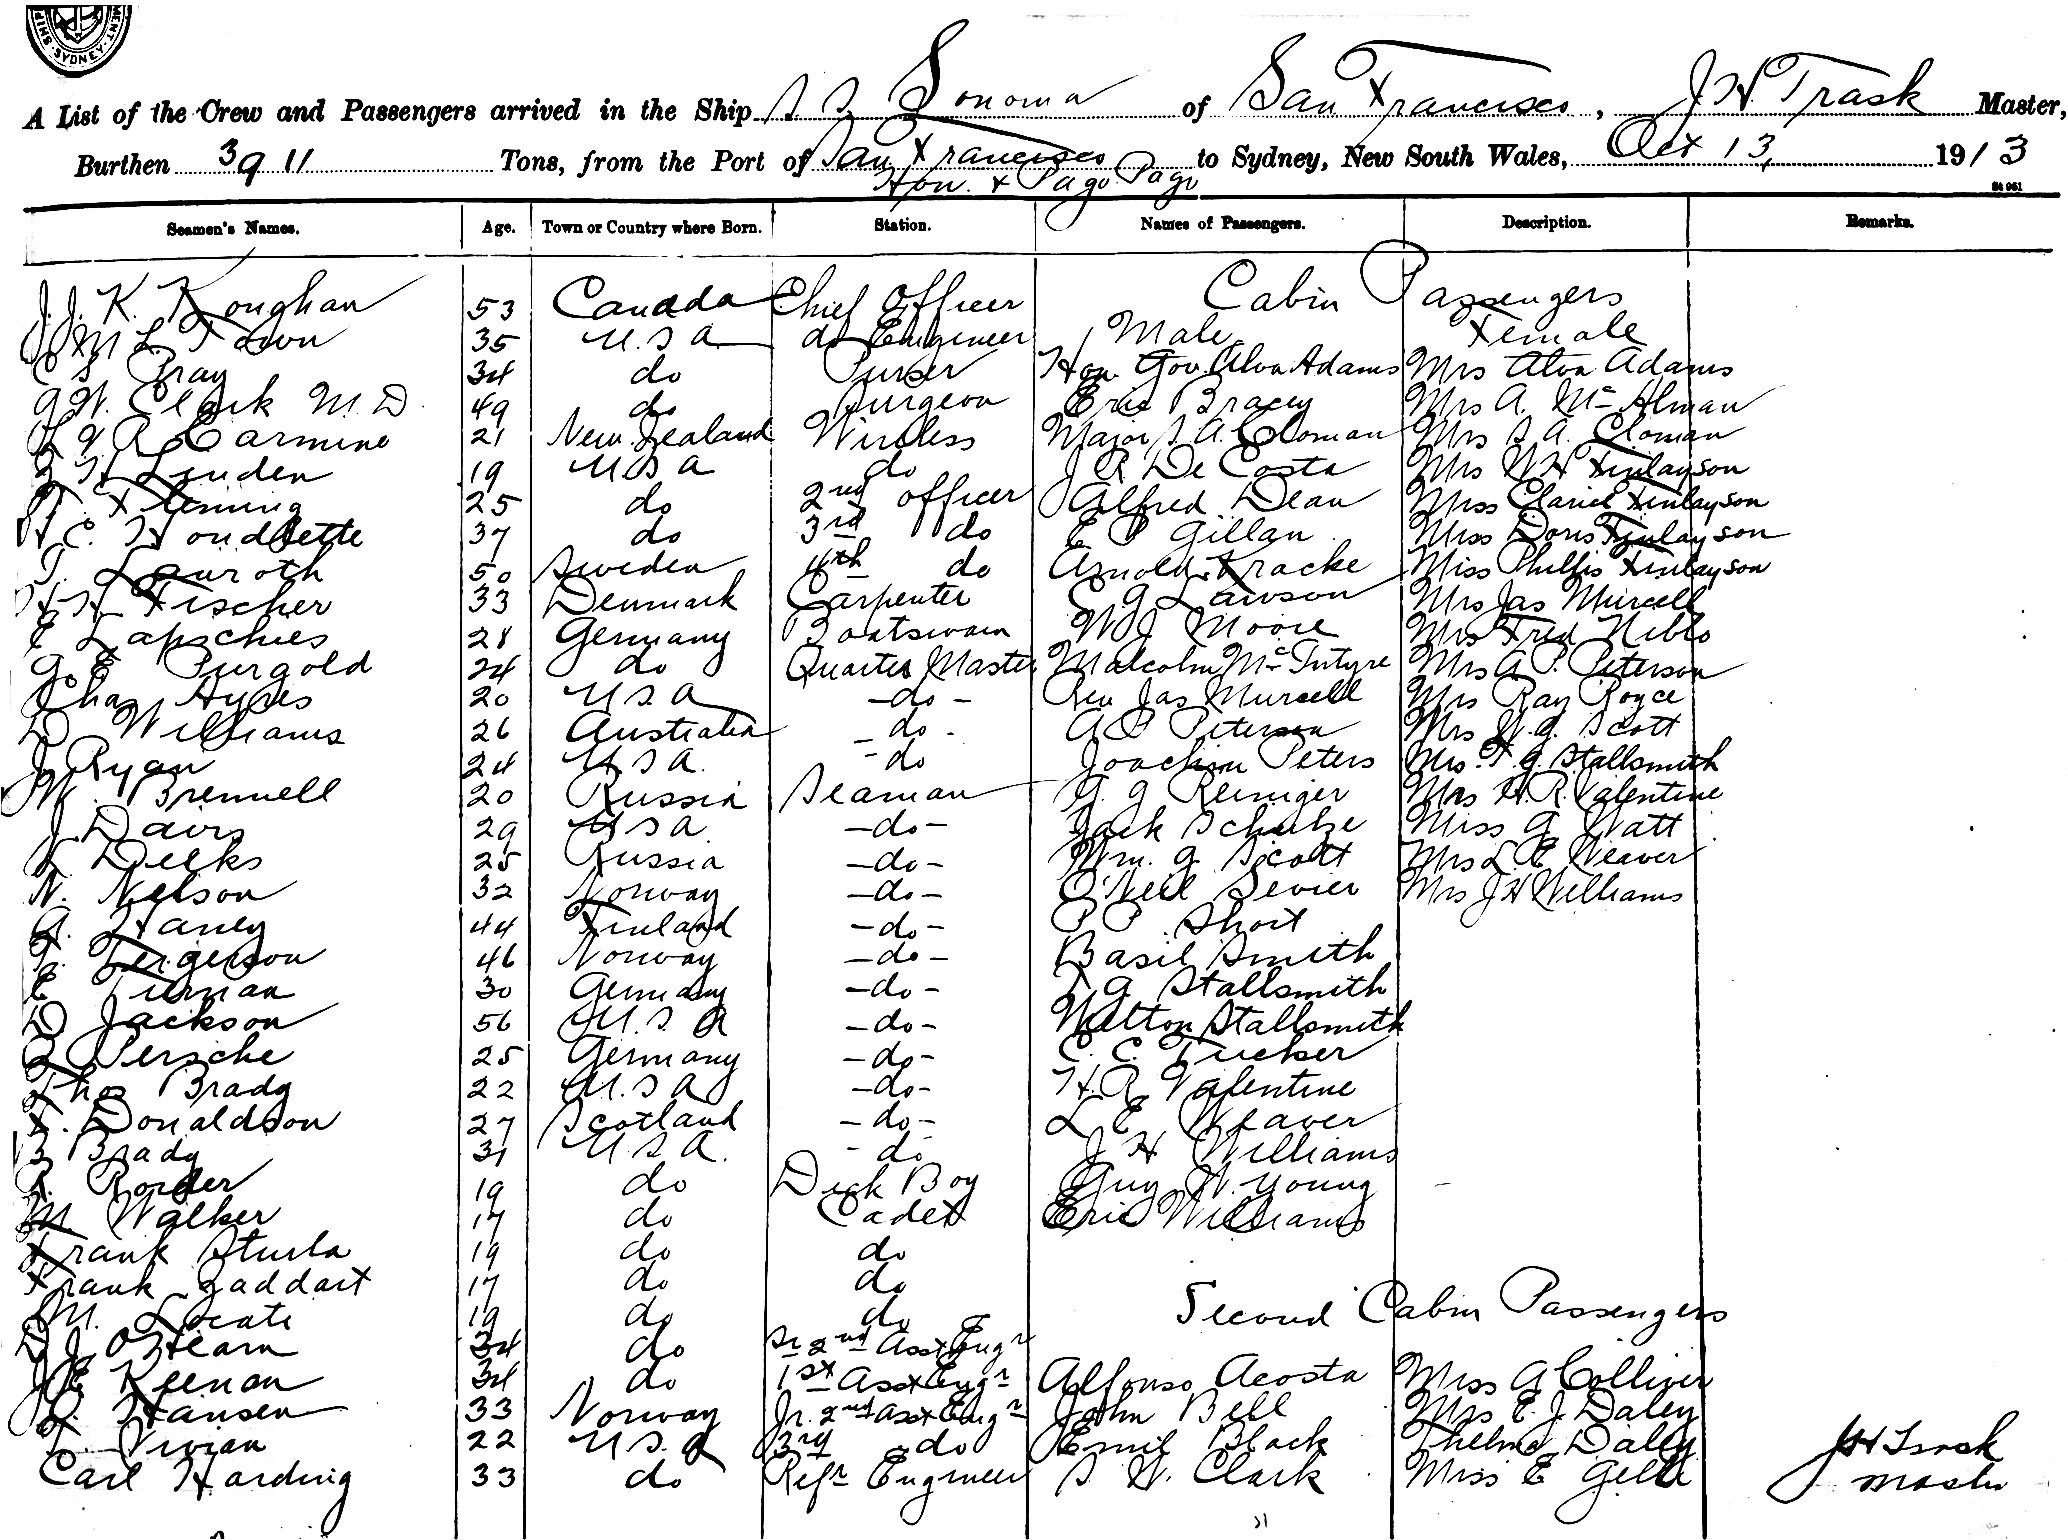 SYDNEY
A List of the Crew and Passengers arrived in the Ship S.S. Sonoma of San Francisco, J H Trask Master,
Burthen 3911 Tons, from the Port of San Francisco to Sydney, New South Wales, Oct 13, 1913
Hon. & Pago Pago
Seamen's Names. Age. Town or Country where Born. Station. Names of Passengers. Description. Remarks.
Cabin Passengers
J. J. K. Houghan 53 Canada Chief Officer
35 U.S.A do Engineer Male Female
C S Gray 34 do Purser Hon Gov. Alva Adams Mrs Alva Adams
G W. Clark M.D. 49 do Surgeon Eric Bracey Mrs A. Mc Alman
Carmine 21 New Zealand Wireless Major S. A. Cloman Mrs S A. Cloman
H Linden 19 U S A do J R De Costa Mrs W H Finlayson
T. Fleming 25 do 2nd officer Alfred Dean Miss Clarice Finlayson
H C. Houdlette 37 do 3rd do E P Gillan Miss Doris Finlayson
T. Lauroth 50 Sweden 4th do Arnold Kracke Miss Phillis Finlayson
H H Fischer 33 Denmark Carpenter C G Lawson Mrs Jas Mursell
E Lapschies 28 Germany Boatswain W J Moore Mrs Fred Niblo
G. E Purgold 24 do Quarter Master Malcolm Mc Intyre Mrs A P. Peterson
Chas Ayres 20 U S A - do - Rev Jas Mursell Mrs Ray Royce
D Williams 26 Australia - do - A P Peterson Mrs W. G. Scott
J Ryan 24 U S A. - do Joachim Peters Mrs. F. G. Stallsmith
M. Brennell 20 Russia Seaman G. G Reiniger Mrs H. R. Valentine
J Davis 29 U S A. - do - Jack Schulze Miss G Watt
Deeks 25 Russia - do - Wm. G. Scott Mrs L. E Weaver
N. Nelson 32 Norway - do - O'Neil Sevier Mrs J H Williams
A. Haney 44 Finland - do - P P. Short
F. Fergerson 46 Norway - do - Basil Smith
E Tieman 30 Germany - do - F G. Stallsmith
D Jackson 56 U. S A - do - Walton Stallsmith
Persche 25 Germany - do - C. C. Tucker
Thos Brady 22 U. S A - do - H. R Valentine
F. Donaldson 27 Scotland - do - L E Weaver
B Brady 31 U S A. - do J H Williams
Border 19 do Deck Boy Guy W. Young
M Walker 17 do Cadet Eric Williams
Frank Sturla 19 do do
Frank Gaddart 17 do do
M. Locate 19 do do Second Cabin Passengers
D J O'Hearn 34 do Sr 2nd Asst Engr
J E Keenan 34 do 1st Asst Engr Alfonso Acosta Miss A Colliver
Hansen 33 Norway Jr. 2nd Asst Engr John Bell Mrs E. J. Daley
Vivian 22 U S. A 3rd do Emil Black Thelma Daley
Carl Harding 33 do Refr Engineer S W. Clark Miss E Gell
J H Trask
Master